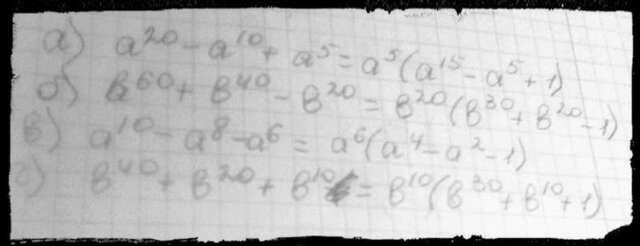 а) a²⁰ - a¹⁰ + a⁵ = a⁵(a¹⁵ - a⁵ + 1)
б) в⁶⁰ + в⁴⁰ - в²⁰ = в²⁰(в³⁰ + в²⁰ - 1)
в) a¹⁰ - a⁸ - a⁶ = a⁶(a⁴ - a² - 1)
г) в⁴⁰ + в²⁰ + в¹⁰ = в¹⁰(в³⁰ + в¹⁰ + 1)